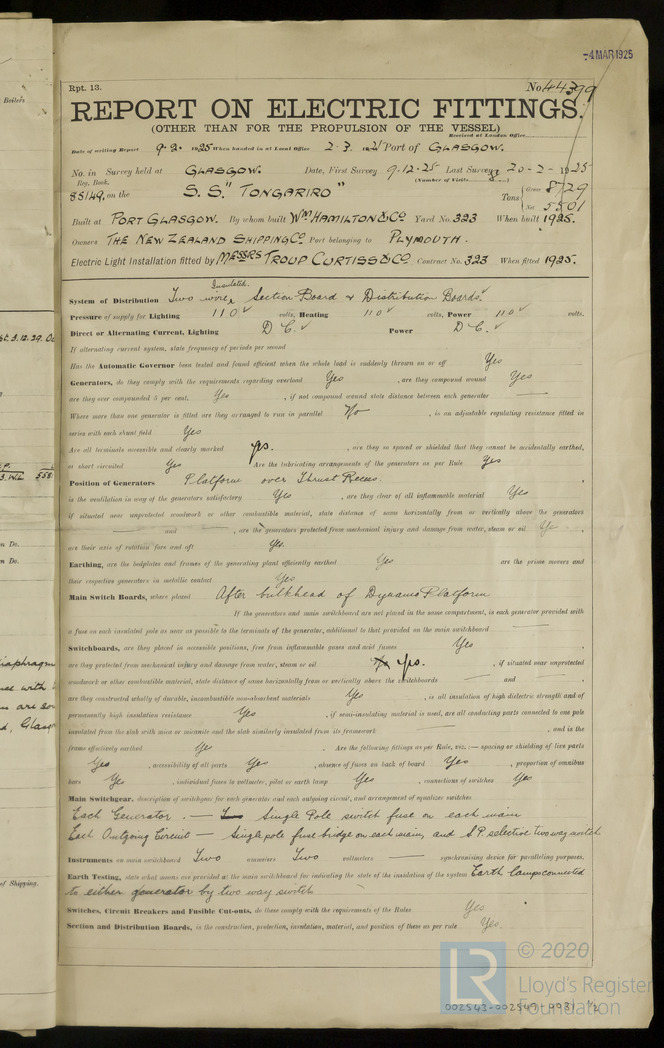 -4 MAR 1925
Rpt. 13.
No. 44399
REPORT ON ELECTRIC FITTINGS.
(OTHER THAN FOR THE PROPULSION OF THE VESSEL)
Received at London Office
Date of writing Report 9.2. 1925 When handed in at Local Office 2.3. Port of GLASGOW.
No. in Survey held at GLASGOW. Date, First Survey 9-12-25 Last Survey 20-2-1925
Reg. Book. (Number of Visits
85149 on the S.S. "TONGARIRO" Tons { Gross 8729
Net 5501
Built at PORT GLASGOW. By whom built Wm HAMILTON & Co Yard No. 323 When built 1925.
Owners THE NEW ZEALAND SHIPPING Co Port belonging to PLYMOUTH.
Electric Light Installation fitted by MESSRS TROUP CURTISS & Co Contract No. 323 When fitted 1925.
Insulated.
System of Distribution Two wire, Section Board & Distribution Boards.
Pressure of supply for Lighting 110 volts, Heating 110 volts, Power 110 volts.
Direct or Alternating Current, Lighting D C. Power D C.
If alternating current system, state frequency of periods per second
Has the Automatic Governor been tested and found efficient when the whole load is suddenly thrown on or off Yes
Generators, do they comply with the requirements regarding overload Yes , are they compound wound Yes
are they over compounded 5 per cent. Yes , if not compound wound state distance between each generator —
Where more than one generator is fitted are they arranged to run in parallel No , is an adjustable regulating resistance fitted in
series with each shunt field Yes
Are all terminals accessible and clearly marked yes. , are they so spaced or shielded that they cannot be accidentally earthed,
or short circuited Yes Are the lubricating arrangements of the generators as per Rule Yes
Position of Generators Platform over Thrust Recess.
is the ventilation in way of the generators satisfactory Yes , are they clear of all inflammable material Yes
if situated near unprotected woodwork or other combustible material, state distance of same horizontally from or vertically above the generators
— and — , are the generators protected from mechanical injury and damage from water, steam or oil Yes
are their axis of rotation fore and aft Yes.
Earthing, are the bedplates and frames of the generating plant efficiently earthed Yes are the prime movers and
their respective generators in metallic contact Yes
Main Switch Boards, where placed After bulkhead of Dynamo Platform
If the generators and main switchboard are not placed in the same compartment, is each generator provided with
a fuse on each insulated pole as near as possible to the terminals of the generator, additional to that provided on the main switchboard —
Switchboards, are they placed in accessible positions, free from inflammable gases and acid fumes Yes
are they protected from mechanical injury and damage from water, steam or oil yes. , if situated near unprotected
woodwork or other combustible material, state distance of same horizontally from or vertically above the switchboards — and —
are they constructed wholly of durable, incombustible non-absorbent materials Yes , is all insulation of high dielectric strength and of
permanently high insulation resistance Yes , if semi-insulating material is used, are all conducting parts connected to one pole
insulated from the slab with mica or micanite and the slab similarly insulated from its framework — , and is the
frame effectively earthed Yes . Are the following fittings as per Rule, viz. :— spacing or shielding of live parts
Yes , accessibility of all parts Yes , absence of fuses on back of board Yes , proportion of omnibus
bars Yes , individual fuses to voltmeter, pilot or earth lamp Yes , connections of switches Yes
Main Switchgear, description of switchgear for each generator and each outgoing circuit, and arrangement of equalizer switches
Each Generator. — Single Pole switch fuse on each main
Each Outgoing Circuit — Single pole fuse bridge on each main, and S P selective two way switch
Instruments on main switchboard Two ammeters Two voltmeters — synchronising device for paralleling purposes.
Earth Testing, state what means are provided at the main switchboard for indicating the state of the insulation of the system Earth lamps connected
to either generator by two way switch
Switches, Circuit Breakers and Fusible Cut-outs, do these comply with the requirements of the Rules Yes
Section and Distribution Boards, is the construction, protection, insulation, material, and position of these as per rule Yes.
LR © 2020
Lloyd's Register
Foundation
002543-002549-0031 1/2
Boilers
n Do.
n Do.
diaphragm
of Shipping.